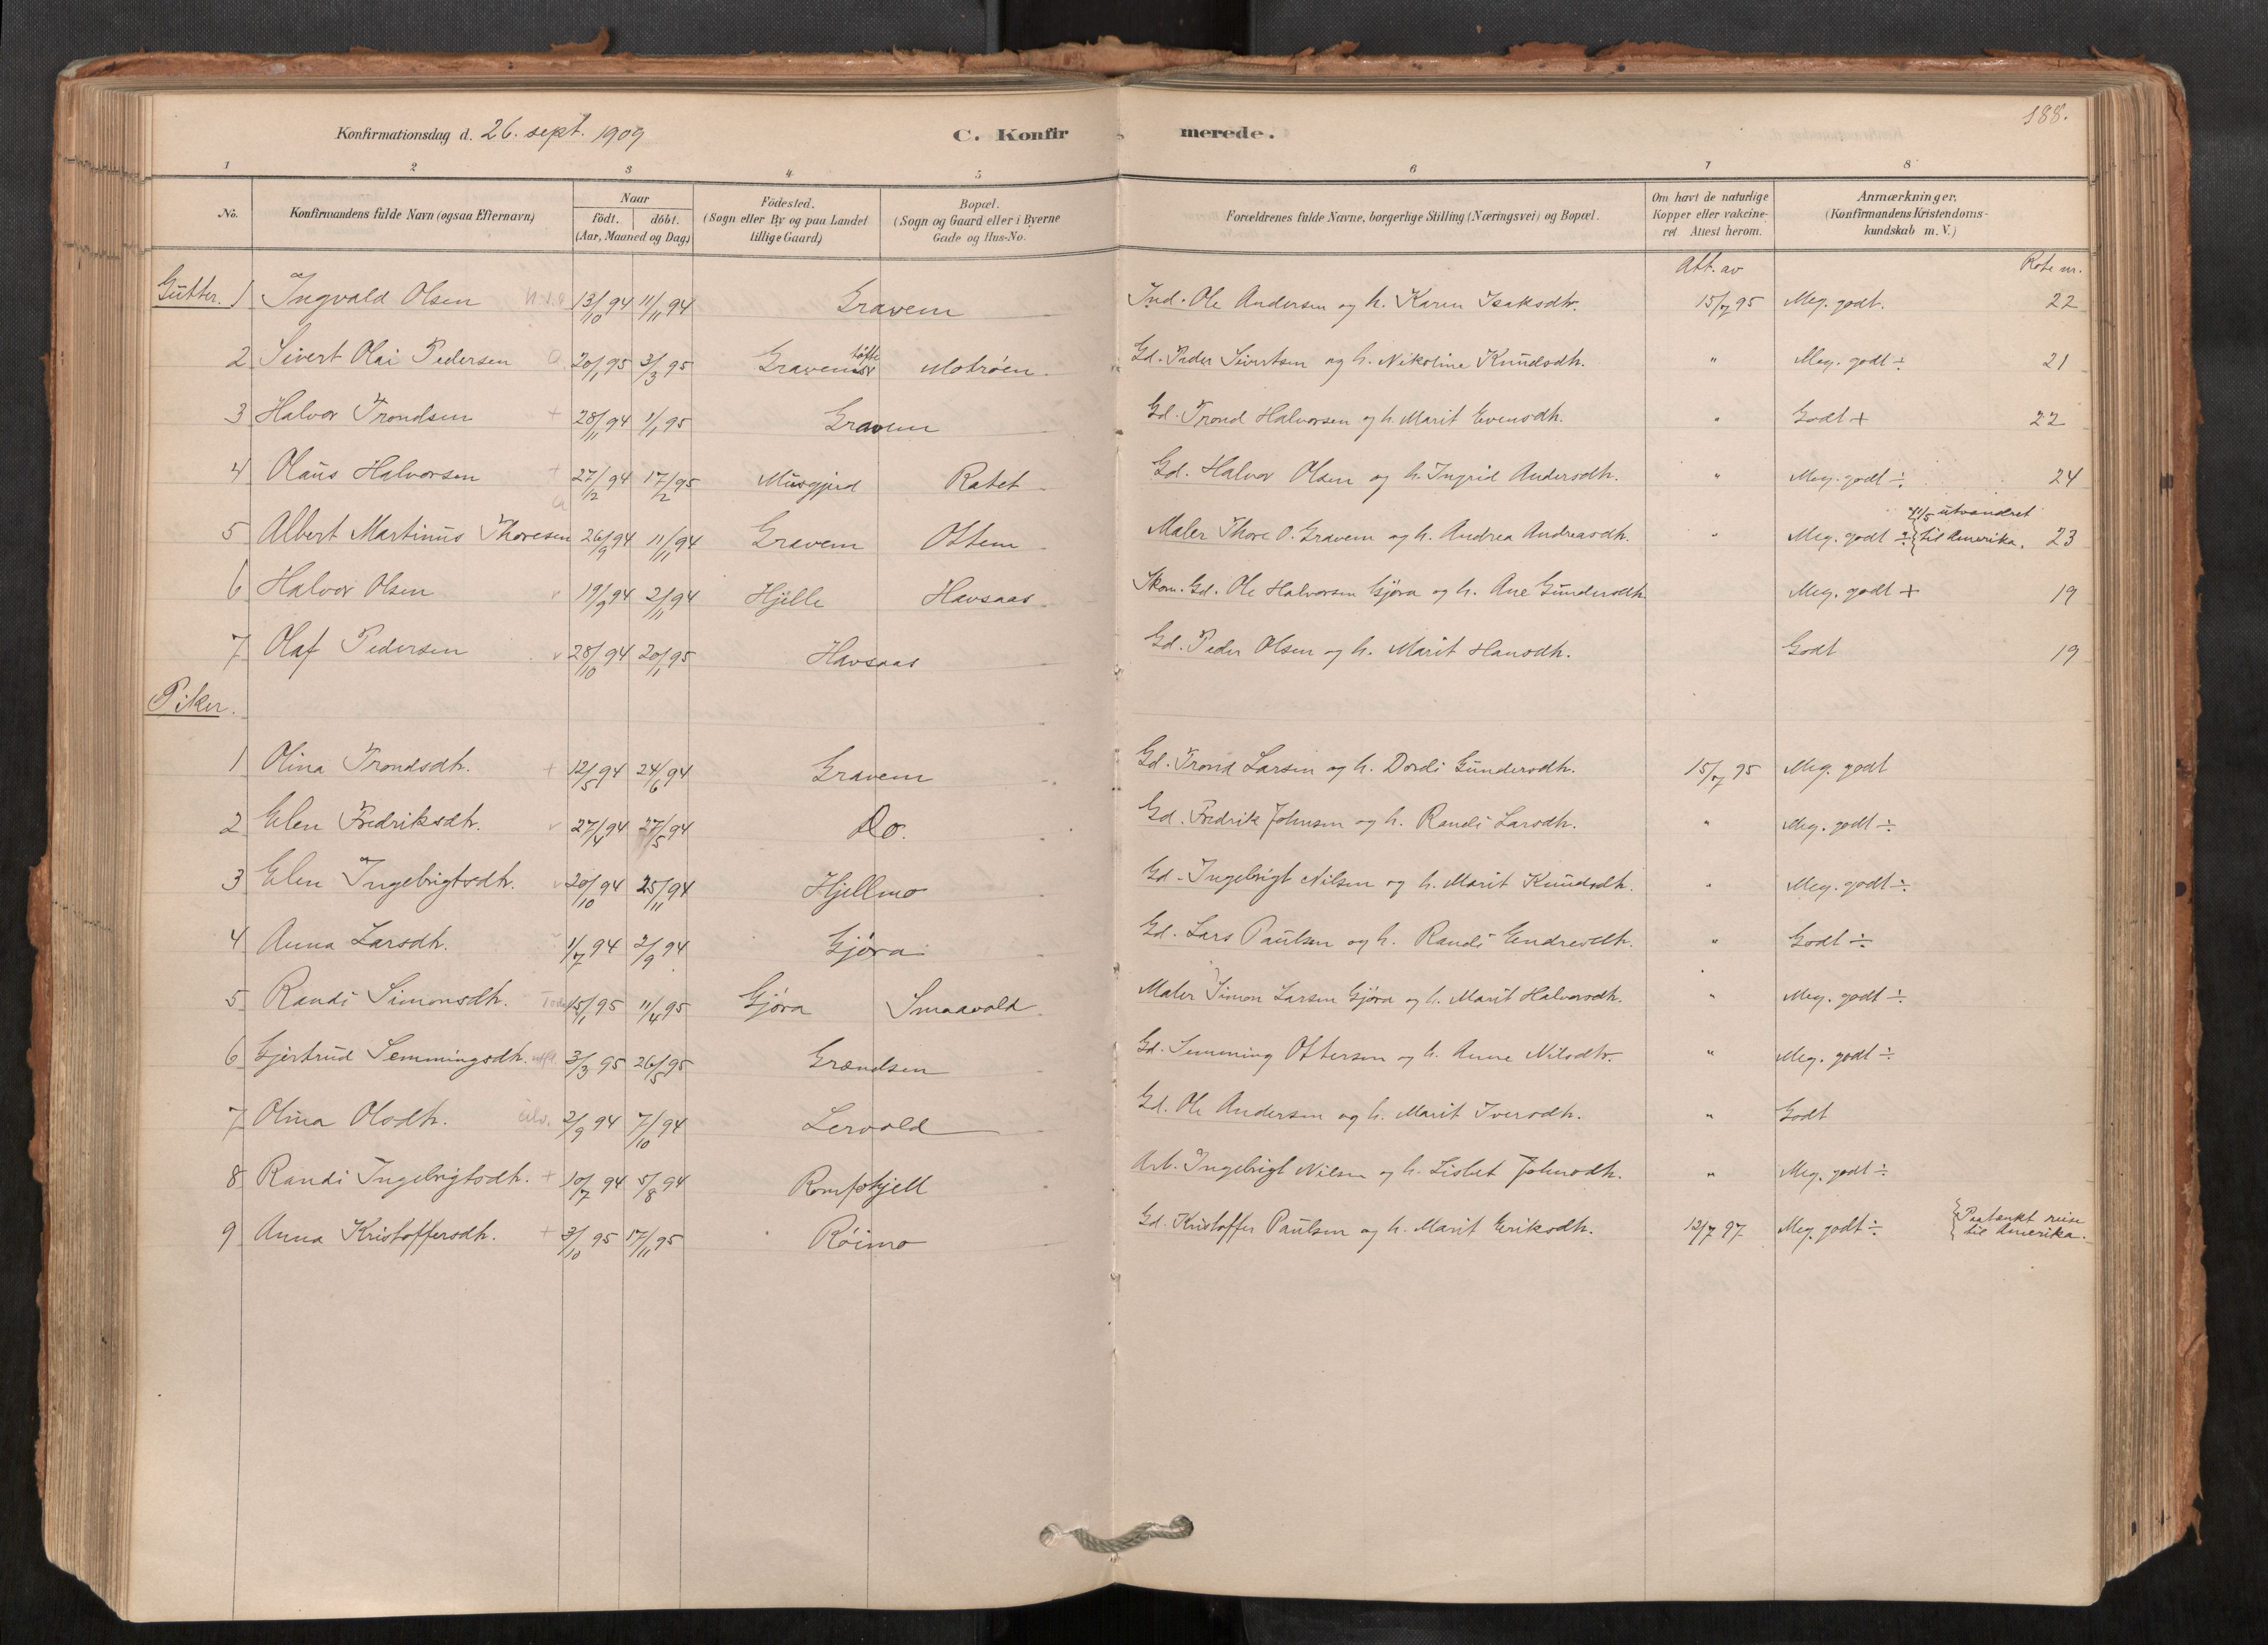 188.
Konfirmationsdag d. 26. sept. 1909 C. Konfirmerede.
1 2 3 4 5 6 7 8
No. Konfirmandens fulde Navn (ogsaa Efternavn) Naar født. døbt. (Aar, Maaned og Dag) Fødested. (Sogn eller By og paa Landet tillige Gaard) Bopæl. (Sogn og Gaard eller i Byerne Gade og Hus-No. Forældrenes fulde Navne, borgerlige Stilling (Næringsvei) og Bopæl. Om havt de naturlige Kopper eller vakcineret. Attest herom. Anmærkninger. (Konfirmandens Kristendomskundskab m. V.)
Att. av Rote nr.
Gutter. 1 Ingvald Olsen 13/10 94 11/11 94 Gravem Ind. Ole Andersen og h. Karen Isaksdtr. 15/7 95 Meg. godt. 22
2 Sivert Olai Pedersen 20/1 95 3/3 95 Gravem Motrøen Gd. Peder Sivertsen og h. Nikoline Knudsdtr. " Meg. godt ÷ 21
3 Halvor Trondsen + 28/11 94 1/1 95 Gravem Gd. Trond Halvorsen og h. Marit Evensdtr. " Godt + 22
4 Olaus Halvorsen + 27/12 94 17/2 95 Musgjerd Ratet Gd. Halvor Olsen og h. Ingrid Andersdtr. " Meg. godt ÷ 24
5 Albert Martinus Thoresen 26/9 94 11/11 94 Gravem Ottem Maler Thore O. Gravem og h. Andrea Andreasdtr. " Meg. godt ÷ utvandret til Amerika. 23
6 Halvor Olsen v 19/9 94 2/11 94 Hjelle Havsaas Skom. Gd. Ole Halvorsen Gjøra og h. Ane Gundersdtr. Meg. godt + 19
7 Olaf Pedersen v 28/10 94 20/1 95 Havsaas Gd. Peder Olsen og h. Marit Hansdtr. Godt 19
Piker.
1 Olina Trondsdtr. + 12/5 94 24/6 94 Gravem Gd. Trond Larsen og h. Dordi Gundersdtr. 15/7 95 Meg. godt
2 Elen Fredriksdtr. v 27/4 94 27/5 94 Do. Gd. Fredrik Johnsen og h. Randi Larsdtr. " Meg. godt ÷
3 Elen Ingebrigtsdtr. v 20/10 94 25/11 94 Hjellmo Gd. Ingebrigt Nilsen og h. Marit Knudsdtr. " Meg. godt ÷
4 Anna Larsdtr. 1/7 94 2/9 94 Gjøra Gd. Lars Paulsen og h. Randi Endresdtr. " Godt ÷
5 Randi Simonsdtr. 15/1 95 11/4 95 Gjøra Smaavold Maler Simon Larsen Gjøra og h. Marit Halvorsdtr. " Meg. godt ÷
6 Gjertrud Semmingsdtr. 3/3 95 26/5 95 Grændsen Gd. Semming Ottersen og h. Anne Nilsdtr. " Meg. godt ÷
7 Olina Olsdtr. 2/9 94 7/10 94 Lervold Gd. Ole Andersen og h. Marit Iversdtr. " Godt
8 Randi Ingebrigtsdtr. + 10/7 94 5/8 94 Romfohjell Arb. Ingebrigt Nilsen og h. Lisbet Johnsdtr. " Meg. godt ÷
9 Anna Kristoffersdtr. + 3/10 95 17/11 95 Røimo Gd. Kristoffer Paulsen og h. Marit Eriksdtr. 12/7 97 Meg. godt ÷ Paatænkt reise til Amerika.